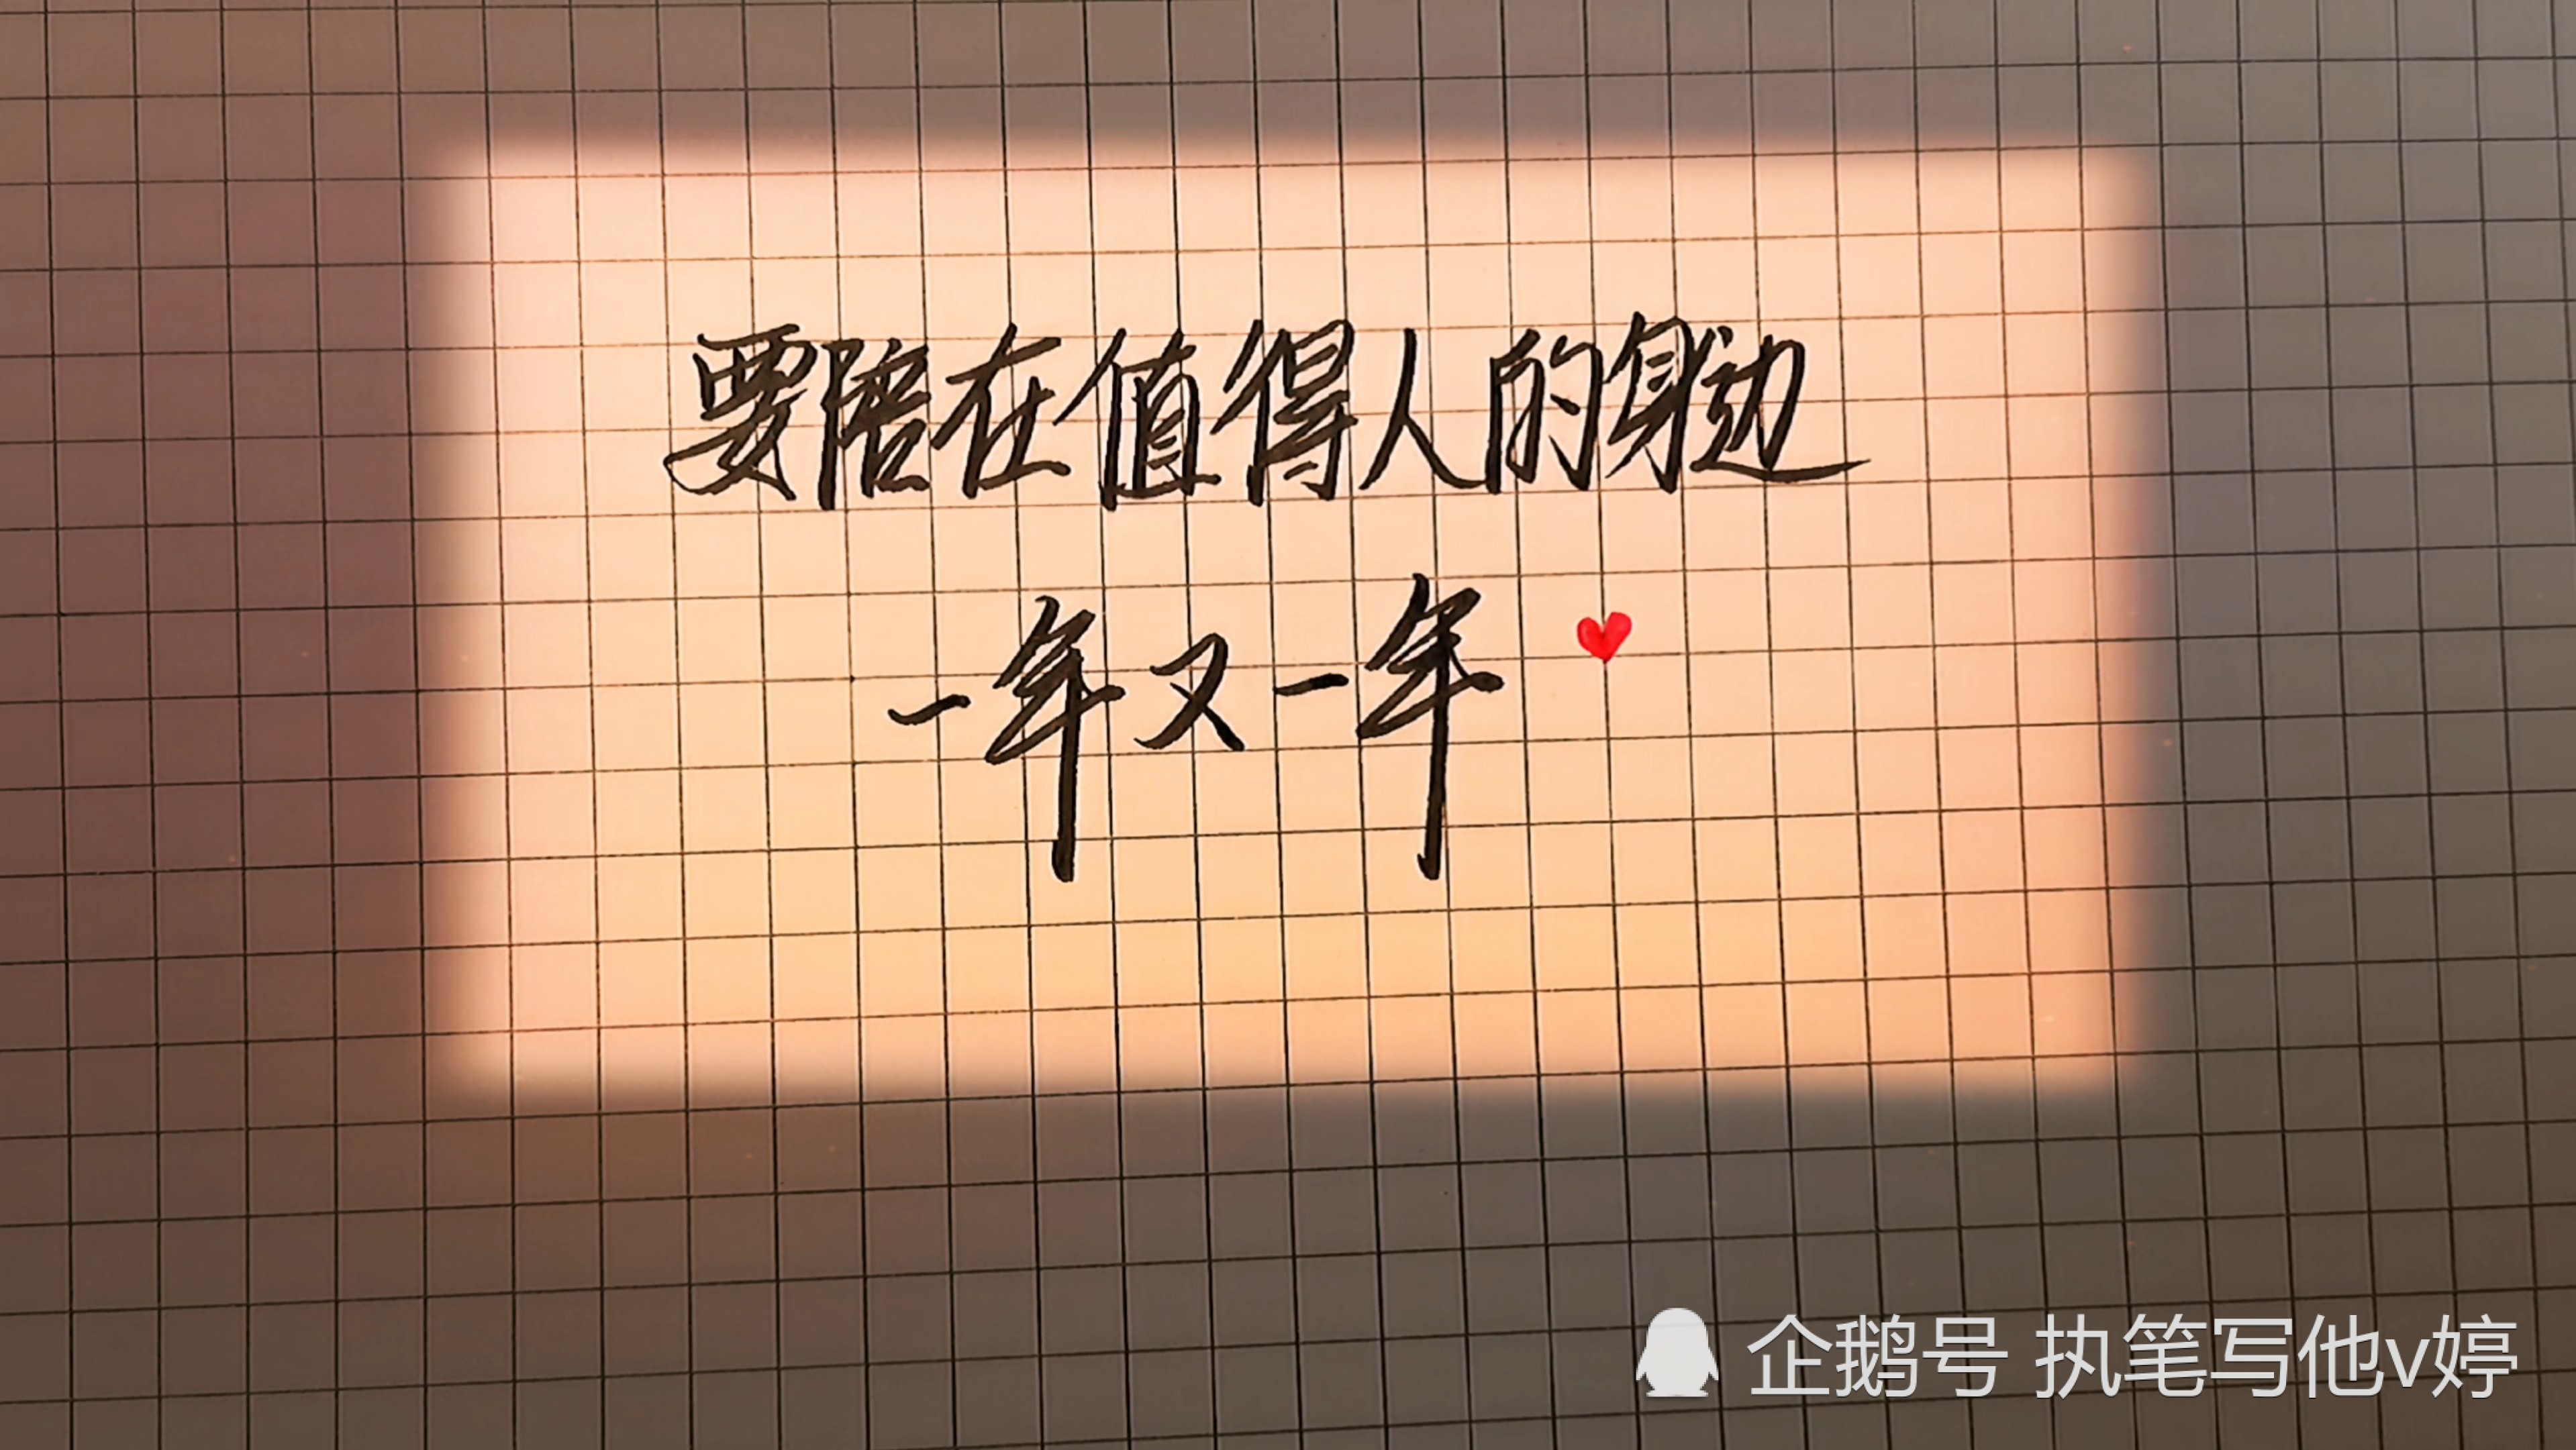 要陪在值得人的身边
一年又一年
企鹅号 执笔写他v婷